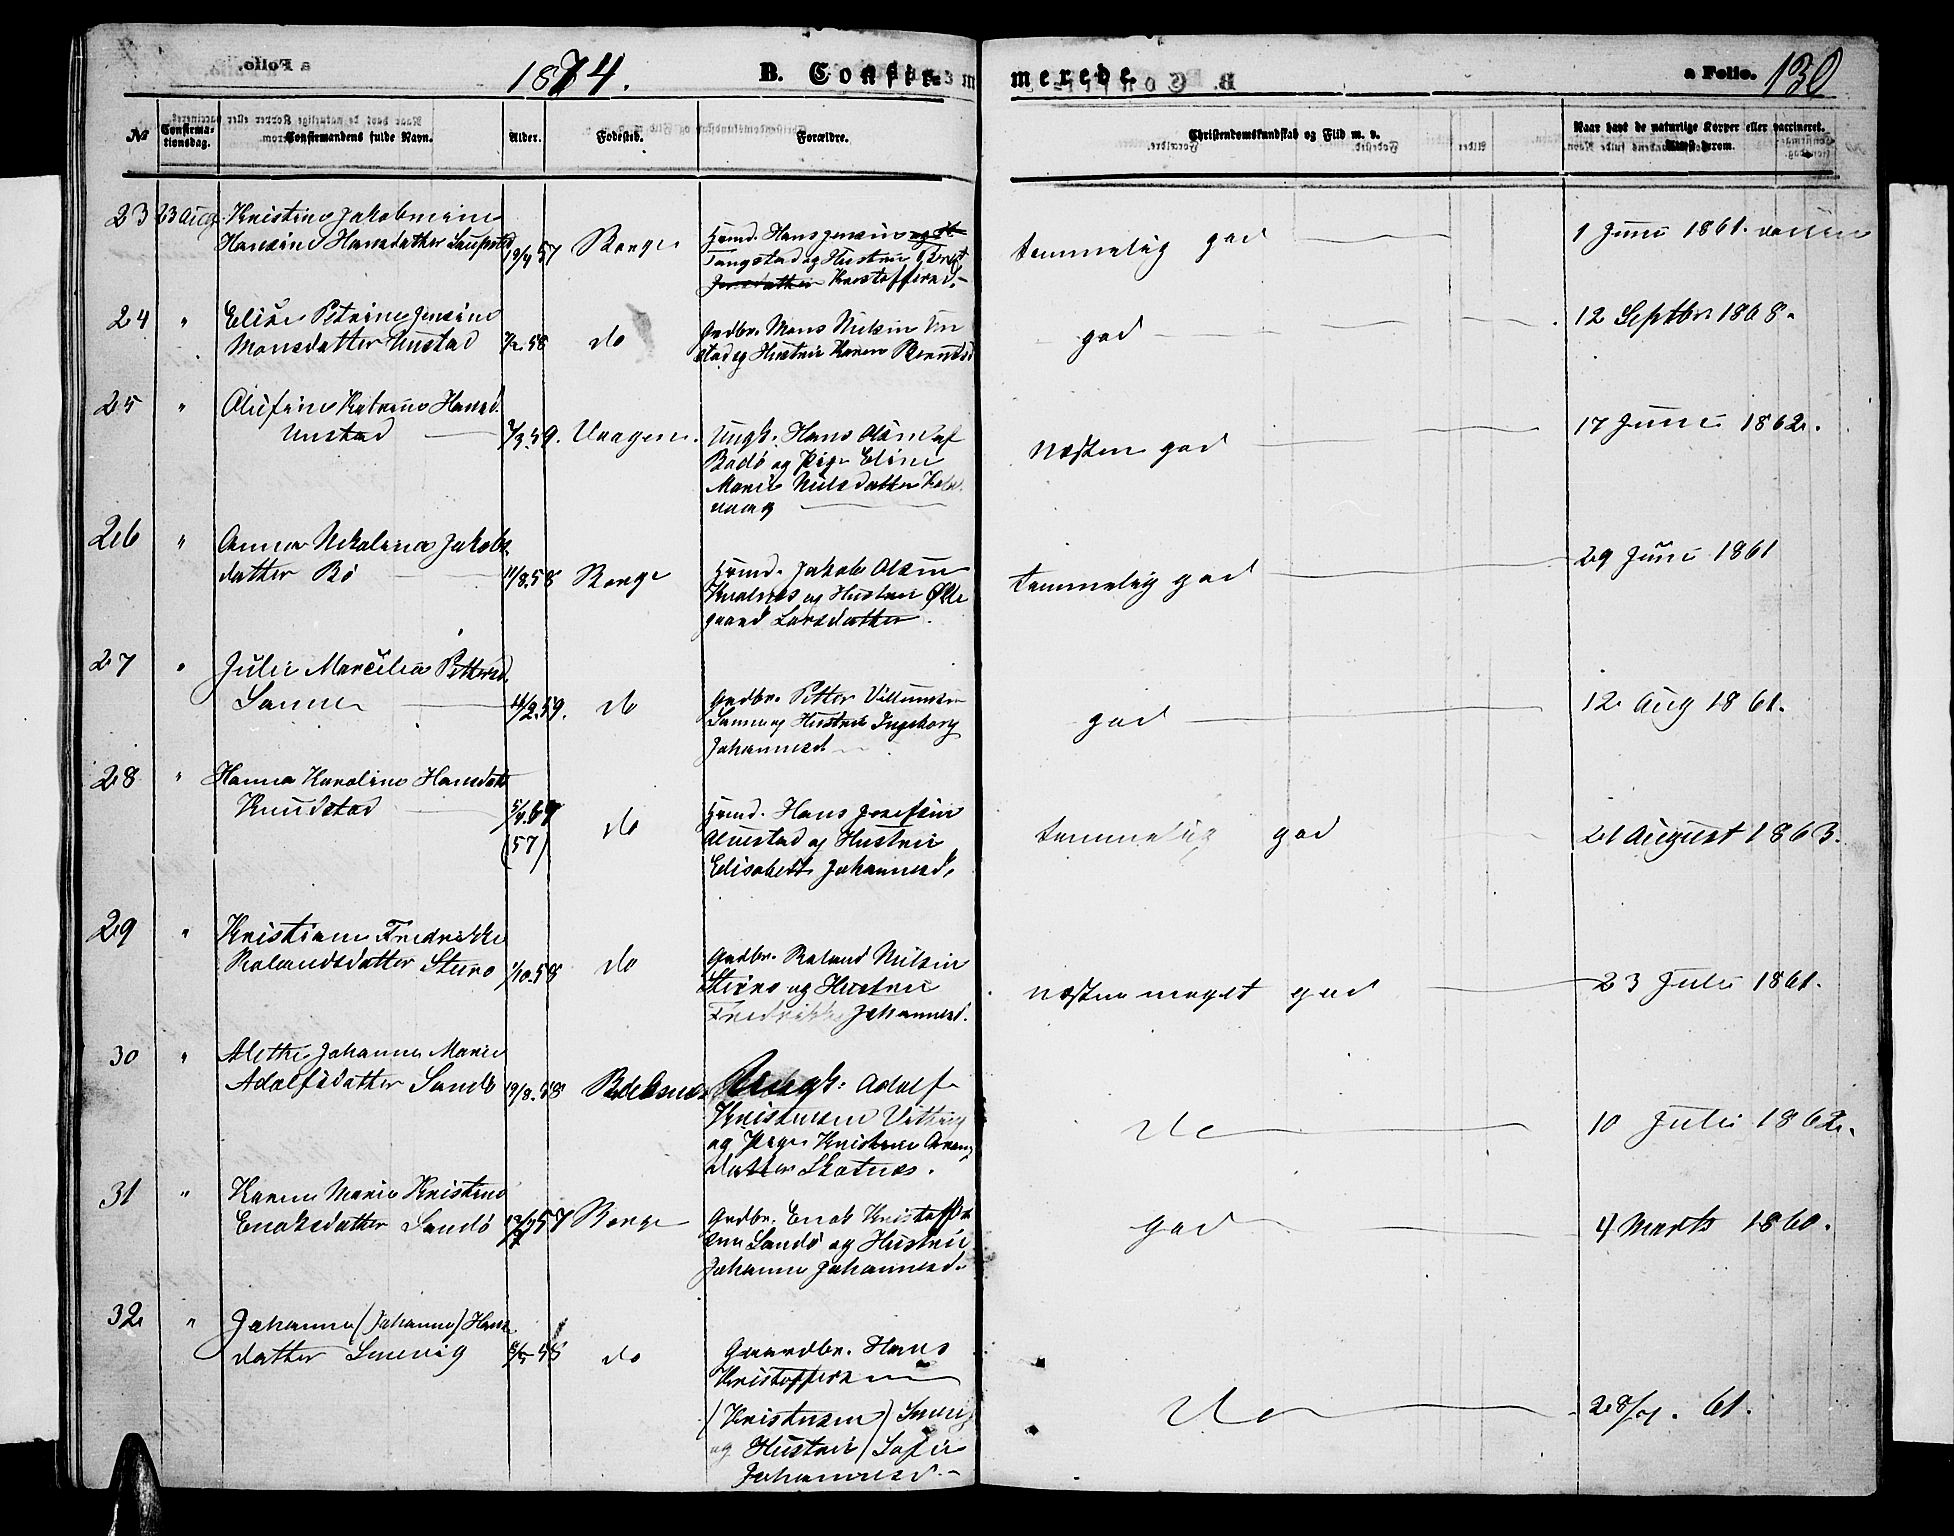 1874. B. Confirmerede. a Folio. 130
No Confirmationsdag. Confirmandens fulde Navn. Alder. Fødested. Forældre. Christendomskundskab og Flid m. v. Naar havt de naturlige Kopper eller vaccineret. Attest derom.
23 23 Aug Kristine Jakobmine
Hansine Hansdatter Laupstad 19/4 57 Borge Hmd. Hans Jensen og
Tangstad og Hustru Beret
Jensdatter Kristoffersd. temmelig god 1 Juni 1861.
24 " Elise Petrine Jensine
Monsdatter Unstad 7/2.58 do Grdbr. Mons Nilsen Un
stad og Hustru Karen Berntsd god 12 Septbr 1868.
25 " Olufine Katrine Hansd.
Unstad 7/3.59. Vaagen. Ungk. Hans Olsen af
Bodø og Pige Eline
Marie Nilsdatter Kabel
vaag næsten god 17 Juni 1862.
26 " Anna Nikolina Jakobs
datter Bø 11/8.58 Borge Hmd. Jakob Olsen
og Hustru Olle
gaard Larsdatter. temmelig god 29 Juni 1861
27 " Julie Marcilia Pettersd.
Sanne 14/2.59. do Grdbr. Petter Villumsen
Sanne og Hustru Ingeborg
Johannesd god 12 Aug 1861.
28 " Hanna Karoline Hansdatt
Knudstad (57) do Hmd. Hans Josefsen
Alnestad og Hustru
Elisabert Johannesd. temmelig god 21 August 1863.
29 " Kristiane Fredrikke
Rolandsdatter Steiro 1/10.58 do Grdbr. Roland Nilsen
Steiro og Hustru
Fredrikke Johannesd. næsten meget god 23 Juli 1861.
30 " Alethe Johanna Marie
Adolfsdatter Sandø 19/8.58 Buksnes Ungk: Adolf
Kristensen Vetting
og Pige Kristine Arens
datter Skotnes. do 10 Juli 1862.
31 " Karen Marie Kristine
Enoksdatter Sandø 57 Borge Grdbr. Enok Kristoffer
sen Sandø og Hustru
Johanna Johannesd. god 4 Marts 1860.
32 " Johanna (Johanne) Hans
datter Smevig 58 do Gaardbr. Hans
Kristoffersen
(Kristensen) Smevig
og Hustru (Sofie
Johannesd. do 28/7. 61.